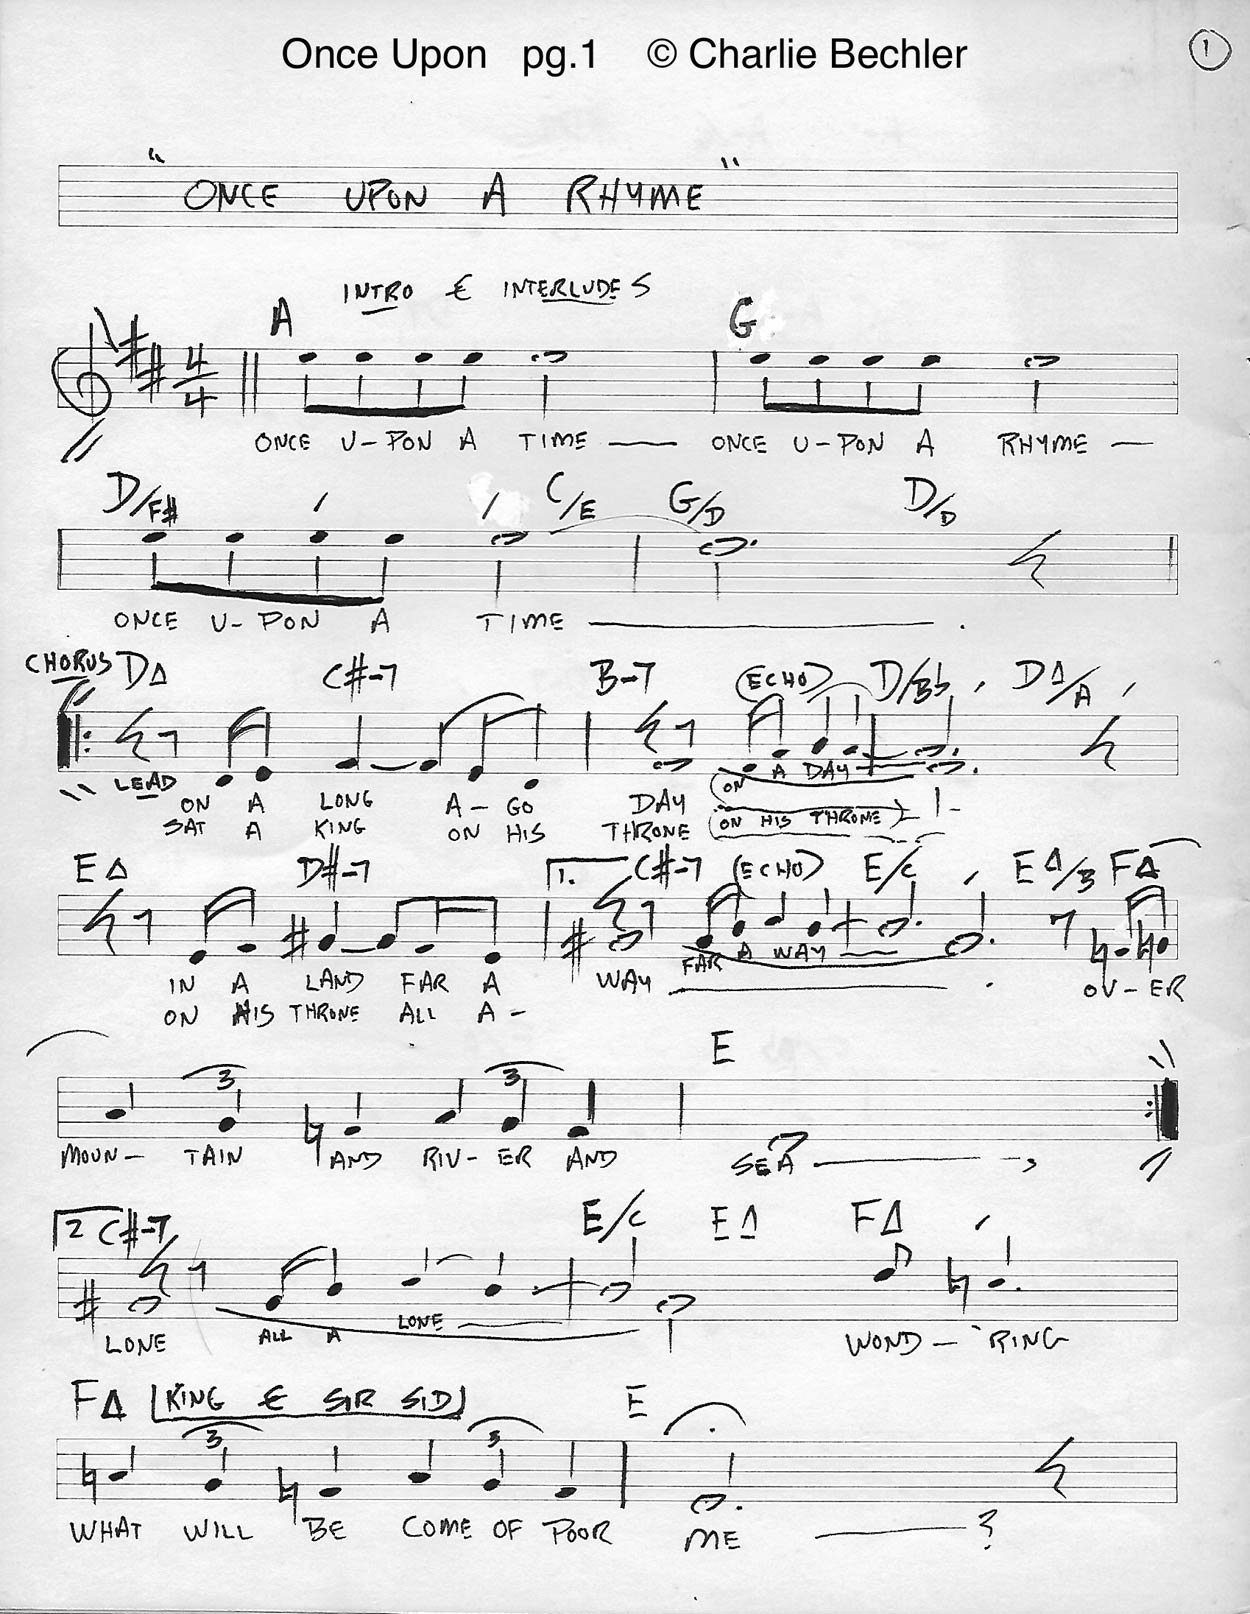 Once Upon pg.1 © Charlie Bechler
1
"ONCE UPON A RHYME"
INTRO & INTERLUDES
A G
4/4
ONCE U-PON A TIME — ONCE U-PON A RHYME —
D/F# C/E G/D D/D
ONCE U-PON A TIME — .
CHORUS D△ C#-7 B-7 (ECHO) D/Bb D△/A
LEAD ON A DAY
ON A LONG A-GO DAY
SAT A KING ON HIS THRONE (ON HIS THRONE)
E△ D#-7 1. C#-7 (ECHO) E/C E△/B F△
FAR A WAY
IN A LAND FAR A WAY — . OV-ER
ON HIS THRONE ALL A-
E
3 3
MOUN-TAIN AND RIV-ER AND SEA — ,
2 C#-7 E/C E△ F△
LONE ALL A LONE — WOND-'RING
F△ [KING & SIR SID] E
3 3
WHAT WILL BE COME OF POOR ME — ?